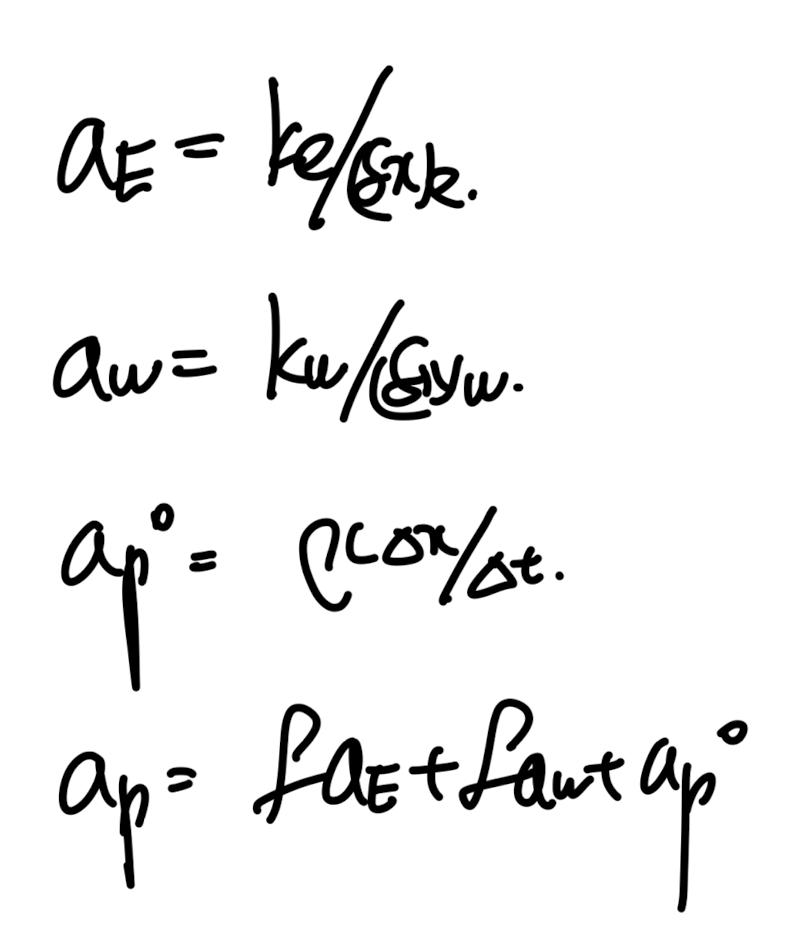 a_E = ke/(δx)k.
a_w = kw/(δy)w.
a_p° = ρcΔx/Δt.
a_p = fa_E + fa_w + a_p°